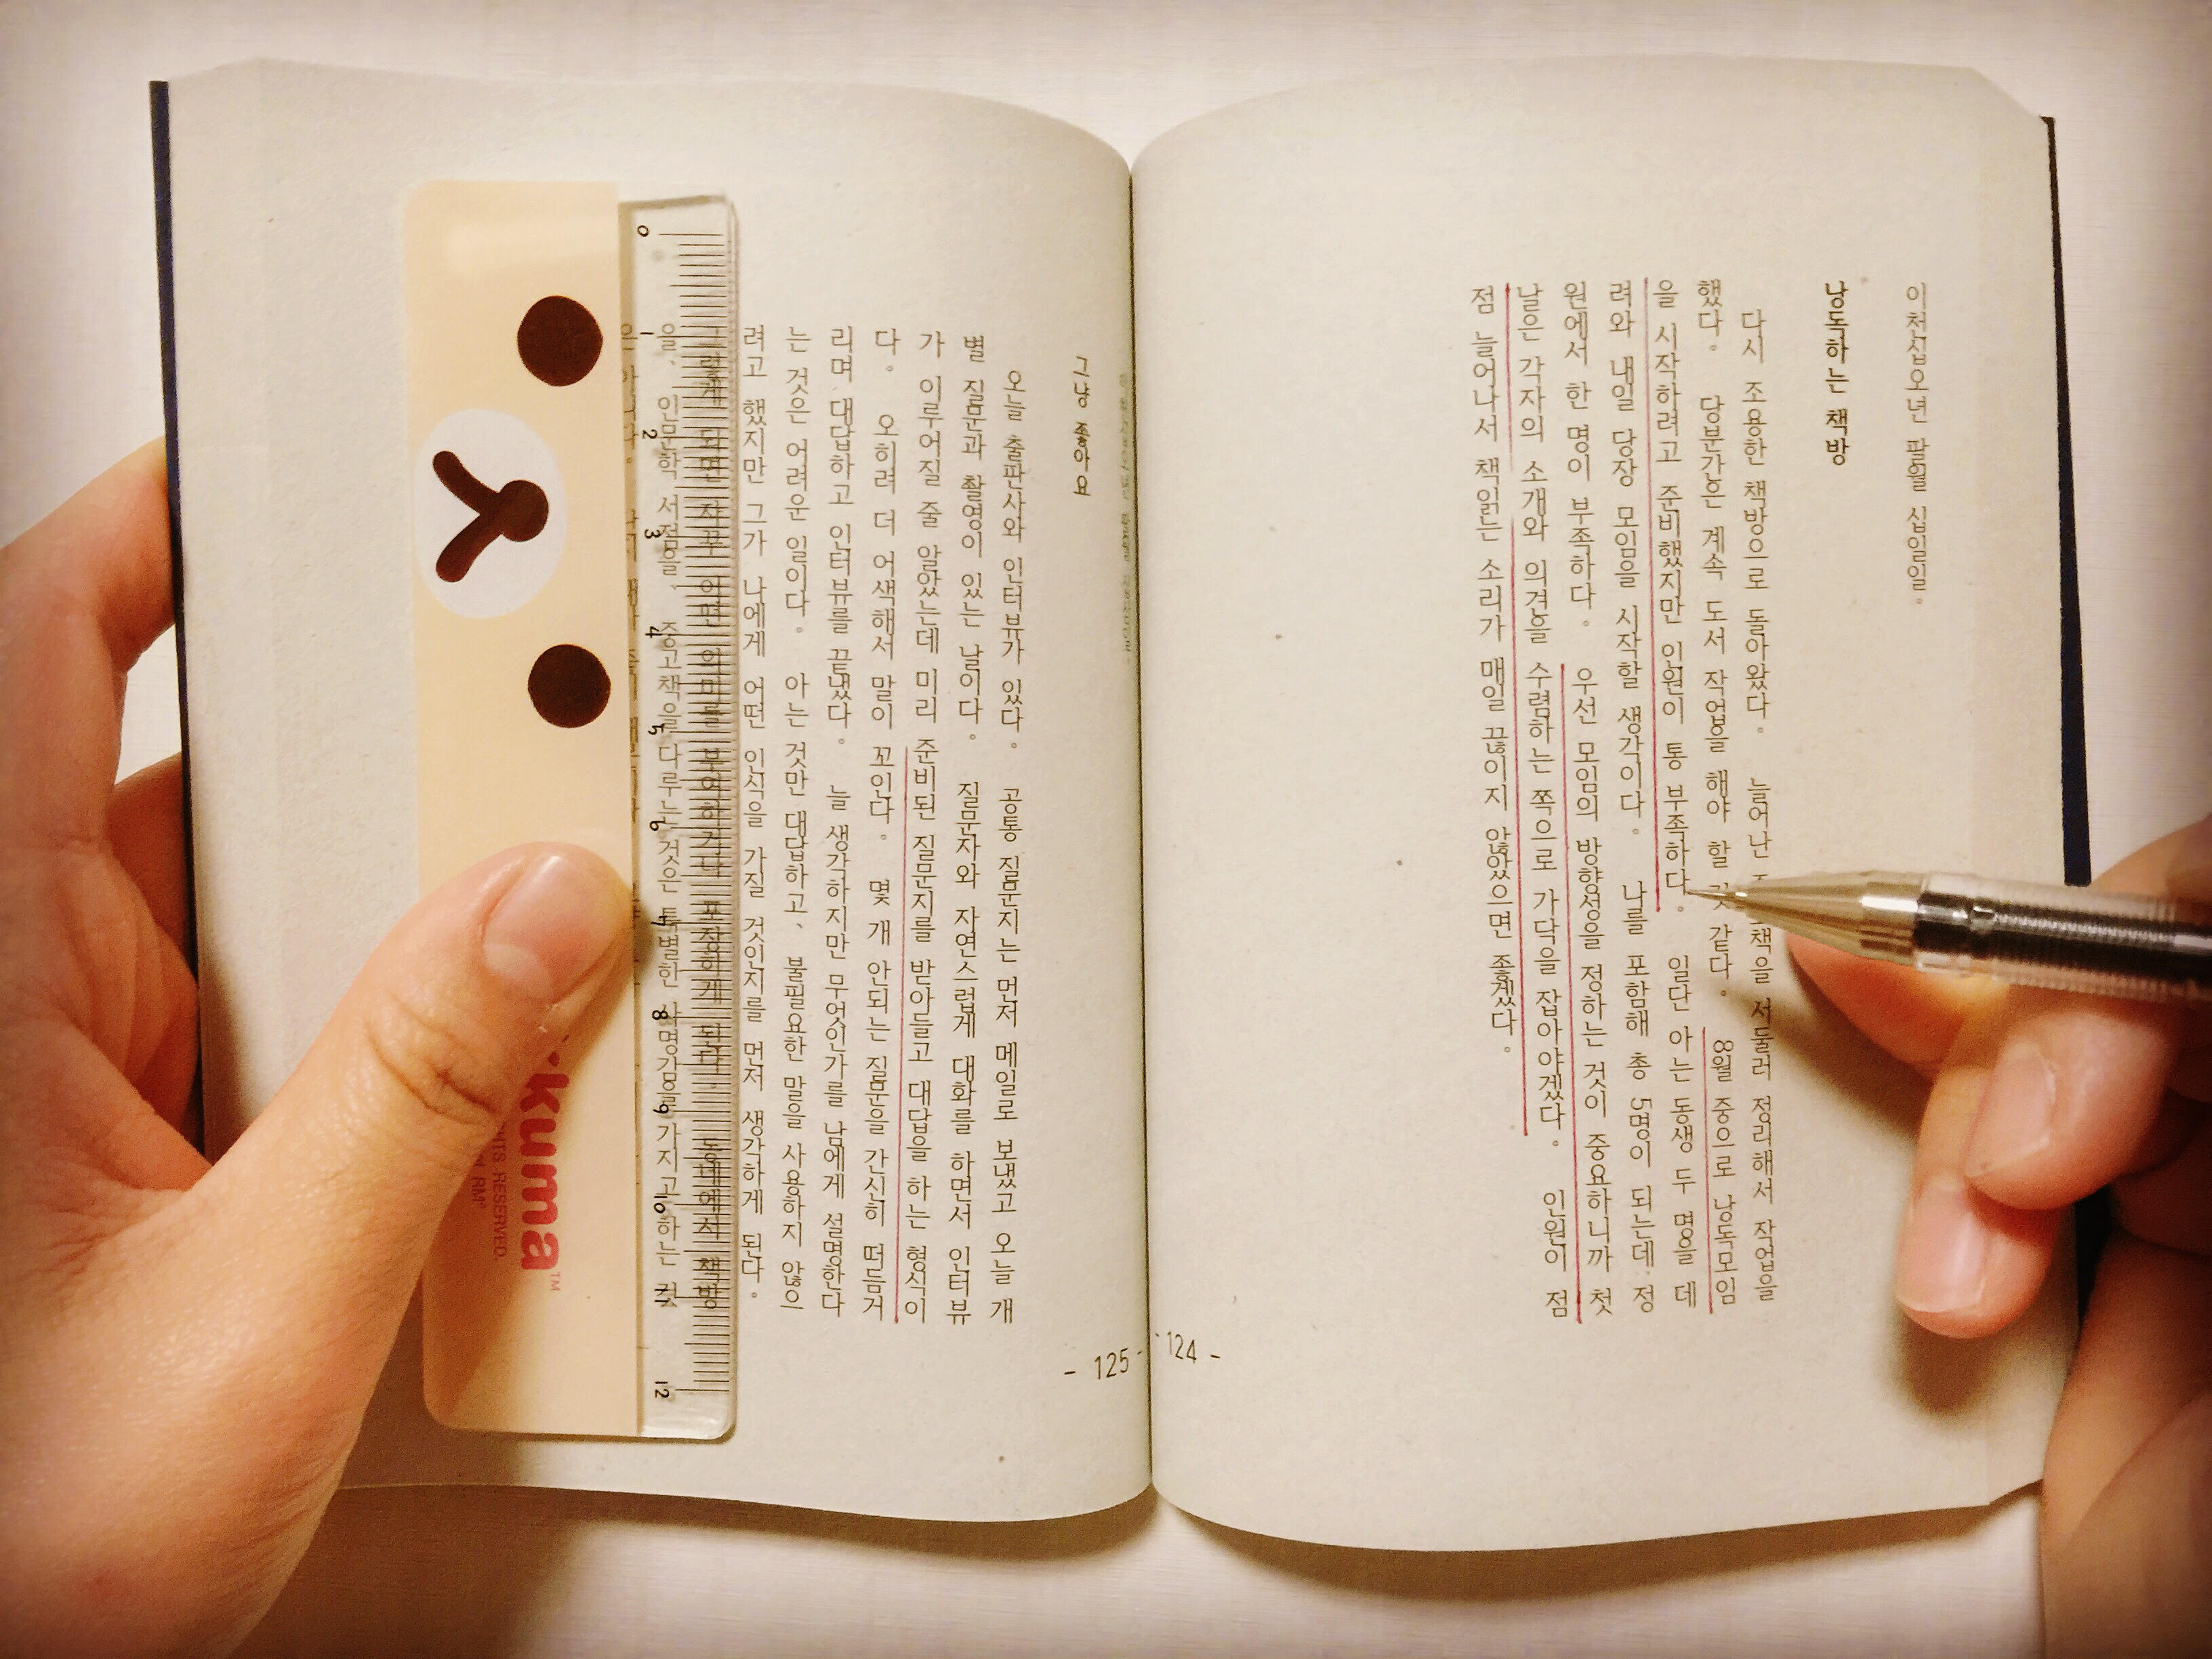 이천십오년 팔월 십일일。
낭독하는 책방
다시 조용한 책방으로 돌아왔다。 늘어난 책을 서둘러 정리해서 작업을
했다。 당분간은 계속 도서 작업을 해야 할 것 같다。 8월 중으로 낭독모임
을 시작하려고 준비했지만 인원이 통 부족하다。 일단 아는 동생 두 명을 데
려와 내일 당장 모임을 시작할 생각이다。 나를 포함해 총 5명이 되는데 정
원에서 한 명이 부족하다。 우선 모임의 방향성을 정하는 것이 중요하니까 첫
날은 각자의 소개와 의견을 수렴하는 쪽으로 가닥을 잡아야겠다。 인원이 점
점 늘어나서 책읽는 소리가 매일 끊이지 않았으면 좋겠다。
- 124 -
그냥 좋아요
오늘 출판사와 인터뷰가 있다。 공통 질문지는 먼저 메일로 보냈고 오늘 개
별 질문과 촬영이 있는 날이다。 질문자와 자연스럽게 대화를 하면서 인터뷰
가 이루어질 줄 알았는데 미리 준비된 질문지를 받아들고 대답을 하는 형식이
다。 오히려 더 어색해서 말이 꼬인다。 몇 개 안되는 질문을 간신히 떠듬거
리며 대답하고 인터뷰를 끝냈다。 늘 생각하지만 무엇인가를 남에게 설명한다
는 것은 어려운 일이다。 아는 것만 대답하고、 불필요한 말을 사용하지 않으
려고 했지만 그가 나에게 어떤 인식을 가질 것인지를 먼저 생각하게 된다。
그렇게 되면 자꾸 어떤 의미를 부여하거나 포장하게 된다。 동네에서 책방
을、 인문학 서점을、 중고책을 다루는 것은 특별한 사명감을 가지고 하는 것
- 125 -
0 1 2 3 4 5 6 7 8 9 10 11 12
kuma™
RESERVED.